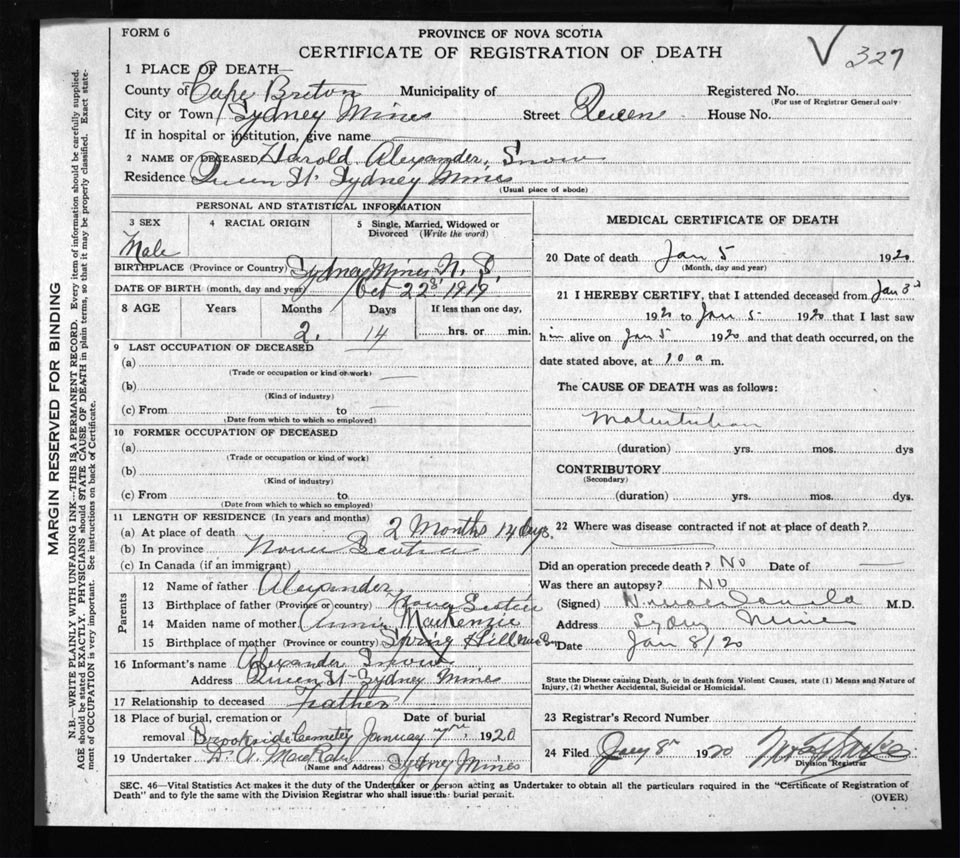 FORM 6
PROVINCE OF NOVA SCOTIA
CERTIFICATE OF REGISTRATION OF DEATH
327
1 PLACE OF DEATH—
County of Cape Breton Municipality of Registered No.
(For use of Registrar General only)
City or Town Sydney Mines Street Queen House No.
If in hospital or institution, give name
2 NAME OF DECEASED Harold Alexander Snow
Residence Queen St. Sydney Mines
(Usual place of abode)
PERSONAL AND STATISTICAL INFORMATION
3 SEX 4 RACIAL ORIGIN 5 Single, Married, Widowed or Divorced (Write the word)
Male
BIRTHPLACE (Province or Country) Sydney Mines N. S.
DATE OF BIRTH (month, day and year) Oct 22 1919
8 AGE Years Months Days If less than one day,
2 14 hrs. or min.
9 LAST OCCUPATION OF DECEASED
(a)
(Trade or occupation or kind of work)
(b)
(Kind of industry)
(c) From to
(Date from which to which so employed)
10 FORMER OCCUPATION OF DECEASED
(a)
(Trade or occupation or kind of work)
(b)
(Kind of industry)
(c) From to
(Date from which to which so employed)
11 LENGTH OF RESIDENCE (In years and months)
(a) At place of death 2 Months 14 days.
(b) In province Nova Scotia
(c) In Canada (if an immigrant)
Parents
12 Name of father Alexander
13 Birthplace of father (Province or country) Nova Scotia
14 Maiden name of mother Annie MacKenzie
15 Birthplace of mother (Province or country) Spring Hill
16 Informant's name Alexander Snow
Address Queen St Sydney Mines
17 Relationship to deceased Father
18 Place of burial, cremation or removal Brookside Cemetery Date of burial January 7 1920
19 Undertaker D. A.
(Name and Address) Sydney Mines
MEDICAL CERTIFICATE OF DEATH
20 Date of death Jan 5 1920
(Month, day and year)
21 I HEREBY CERTIFY, that I attended deceased from Jan 3
1920 to Jan 5 1920 that I last saw
him alive on Jan 5 1920 and that death occurred, on the
date stated above, at 10 a m.
The CAUSE OF DEATH was as follows:
Malnutrition
(duration) yrs. mos. dys
CONTRIBUTORY
(Secondary)
(duration) yrs. mos. dys.
22 Where was disease contracted if not at place of death?
Did an operation precede death? No Date of
Was there an autopsy? NO
(Signed) M.D.
Address Sydney Mines
Date Jan 8/20
State the Disease causing Death, or in death from Violent Causes, state (1) Means and Nature of
Injury, (2) whether Accidental, Suicidal or Homicidal.
23 Registrar's Record Number
24 Filed 8 1920
Division Registrar
SEC. 46—Vital Statistics Act makes it the duty of the Undertaker or person acting as Undertaker to obtain all the particulars required in the "Certificate of Registration of
Death" and to fyle the same with the Division Registrar who shall issue the burial permit.
(OVER)
MARGIN RESERVED FOR BINDING
N.B.—WRITE PLAINLY WITH UNFADING INK—THIS IS A PERMANENT RECORD. Every item of information should be carefully supplied.
AGE should be stated EXACTLY. PHYSICIANS should STATE CAUSE OF DEATH in plain terms, so that it may be properly classified. Exact state-
ment of OCCUPATION is very important. See instructions on back of Certificate.